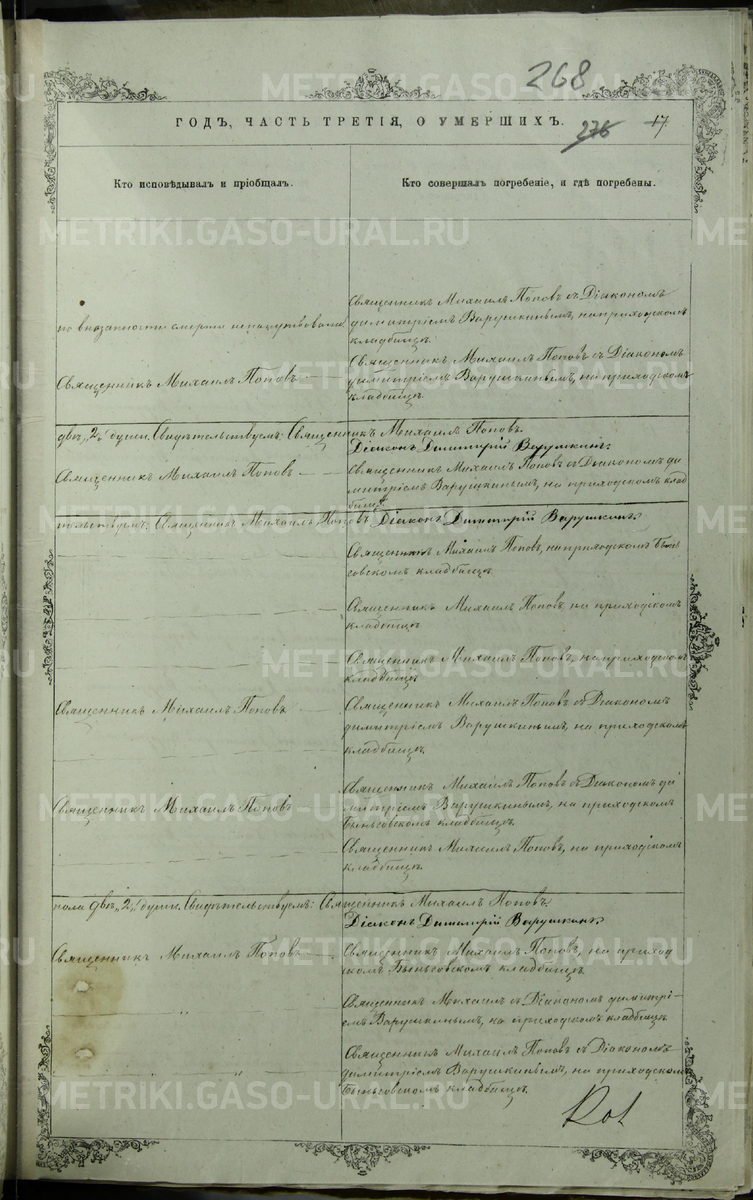 268
ГОДЪ, ЧАСТЬ ТРЕТІЯ, О УМЕРШИХЪ.
276 17
Кто исповѣдывалъ и пріобщалъ.
Кто совершалъ погребеніе, и гдѣ погребены.
METRIKI.GASO-URAL.RU
Священникъ Михаилъ Поповъ съ Діакономъ
Димитріемъ Варушкинымъ, на приходскомъ
кладбищѣ.
по внезапности смерти
Священникъ Михаилъ Поповъ съ Діакономъ
Димитріемъ Варушкинымъ, на приходскомъ
кладбищѣ.
Священникъ Михаилъ Поповъ
двѣ „2„ души. Свидѣтельствуемъ: Священникъ Михаилъ Поповъ.
Діаконъ Димитрій Варушкинъ.
Священникъ Михаилъ Поповъ
Священникъ Михаилъ Поповъ съ Діакономъ Ди
митріемъ Варушкинымъ, на приходскомъ клад
бищѣ
тельствуемъ: Священникъ Михаилъ Поповъ Діаконъ Димитрій Варушкинъ.
Священникъ Михаилъ Поповъ, на приходскомъ Бынь
говскомъ кладбищѣ
Священникъ Михаилъ Поповъ на приходскомъ
кладбищѣ
Священникъ Михаилъ Поповъ, на приходскомъ
кладбищѣ.
Священникъ Михаилъ Поповъ
Священникъ Михаилъ Поповъ съ Діакономъ
Димитріемъ Варушкинымъ, на приходскомъ
кладбищѣ.
Священникъ Михаилъ Поповъ
Священникъ Михаилъ Поповъ съ Діакономъ Ди
митріемъ Варушкинымъ, на приходскомъ
Быньговскомъ кладбищѣ.
Священникъ Михаилъ Поповъ, на приходскомъ
кладбищѣ.
пола двѣ „2„ души. Свидѣтельствуемъ: Священникъ Михаилъ Поповъ.
Діаконъ Димитрій Варушкинъ.
Священникъ Михаилъ Поповъ
Священникъ Михаилъ Поповъ, на приход
скомъ Быньговскомъ кладбищѣ.
Священникъ Михаилъ съ Діакономъ Димитрі-
емъ Варушкинымъ, на приходскомъ кладбищѣ
Священникъ Михаилъ Поповъ съ Діакономъ
Димитріемъ Варушкинымъ, на приходскомъ
Быньговскомъ кладбищѣ.